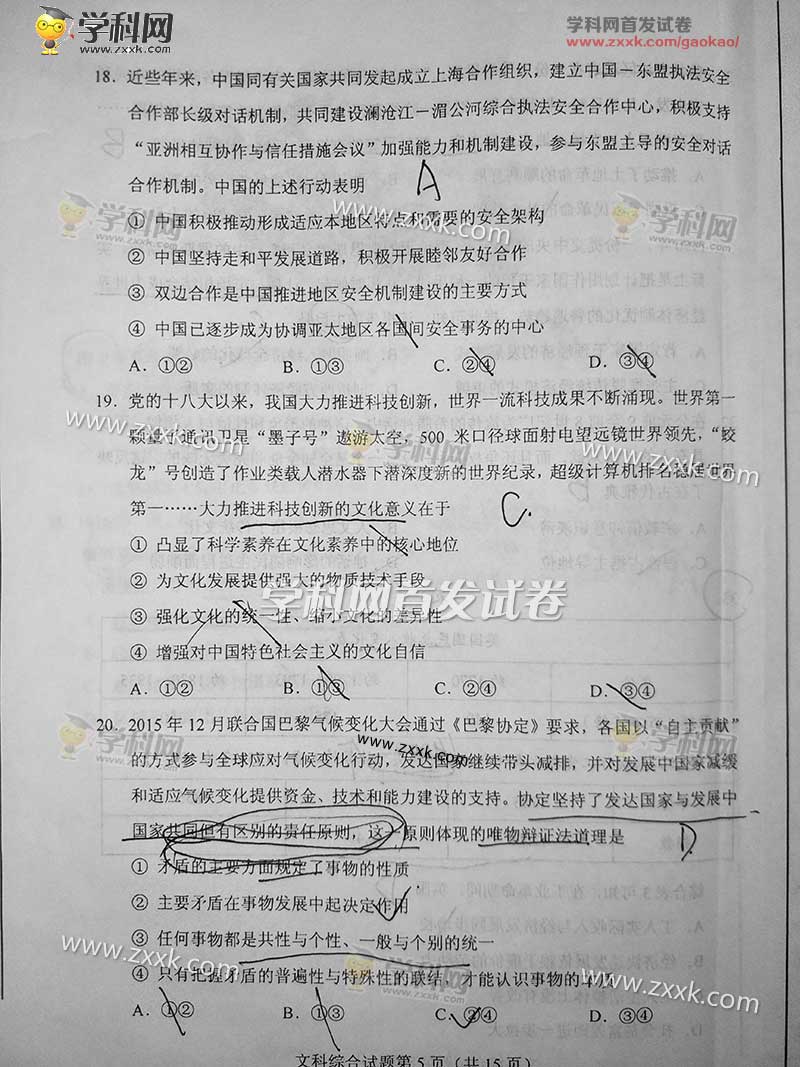 学科网
www.zxxk.com
学科网首发试卷
www.zxxk.com/gaokao/
18. 近些年来，中国同有关国家共同发起成立上海合作组织，建立中国－东盟执法安全
合作部长级对话机制，共同建设澜沧江－湄公河综合执法安全合作中心，积极支持
“亚洲相互协作与信任措施会议”加强能力和机制建设，参与东盟主导的安全对话
合作机制。中国的上述行动表明
A
① 中国积极推动形成适应本地区特点和需要的安全架构
② 中国坚持走和平发展道路，积极开展睦邻友好合作
③ 双边合作是中国推进地区安全机制建设的主要方式
④ 中国已逐步成为协调亚太地区各国间安全事务的中心
A. ①② B. ①③ C. ②④ D. ③④
19. 党的十八大以来，我国大力推进科技创新，世界一流科技成果不断涌现。世界第一
颗量子通讯卫星“墨子号”遨游太空，500 米口径球面射电望远镜世界领先，“蛟
龙”号创造了作业类载人潜水器下潜深度新的世界纪录，超级计算机排名稳居世界
第一……大力推进科技创新的文化意义在于
C.
① 凸显了科学素养在文化素养中的核心地位
② 为文化发展提供强大的物质技术手段
③ 强化文化的统一性、缩小文化的差异性
④ 增强对中国特色社会主义的文化自信
A. ①② B. ①③ C. ②④ D. ③④
20. 2015 年 12 月联合国巴黎气候变化大会通过《巴黎协定》要求，各国以“自主贡献”
的方式参与全球应对气候变化行动，发达国家继续带头减排，并对发展中国家减缓
和适应气候变化提供资金、技术和能力建设的支持。协定坚持了发达国家与发展中
国家共同但有区别的责任原则，这一原则体现的唯物辩证法道理是
D.
① 矛盾的主要方面规定了事物的性质
② 主要矛盾在事物发展中起决定作用
③ 任何事物都是共性与个性、一般与个别的统一
④ 只有把握矛盾的普遍性与特殊性的联结，才能认识事物的本质
A. ①② B. ①③ C. ②④ D. ③④
文科综合试题第 5 页（共 15 页）
学科网
www.zxxk.com
学科网
www.zxxk.com
www.zxxk.com
www.zxxk.com
学科网首发试卷
www.zxxk.com
学科网
www.zxxk.com
学科网
www.zxxk.com
www.zxxk.com
www.zxxk.com